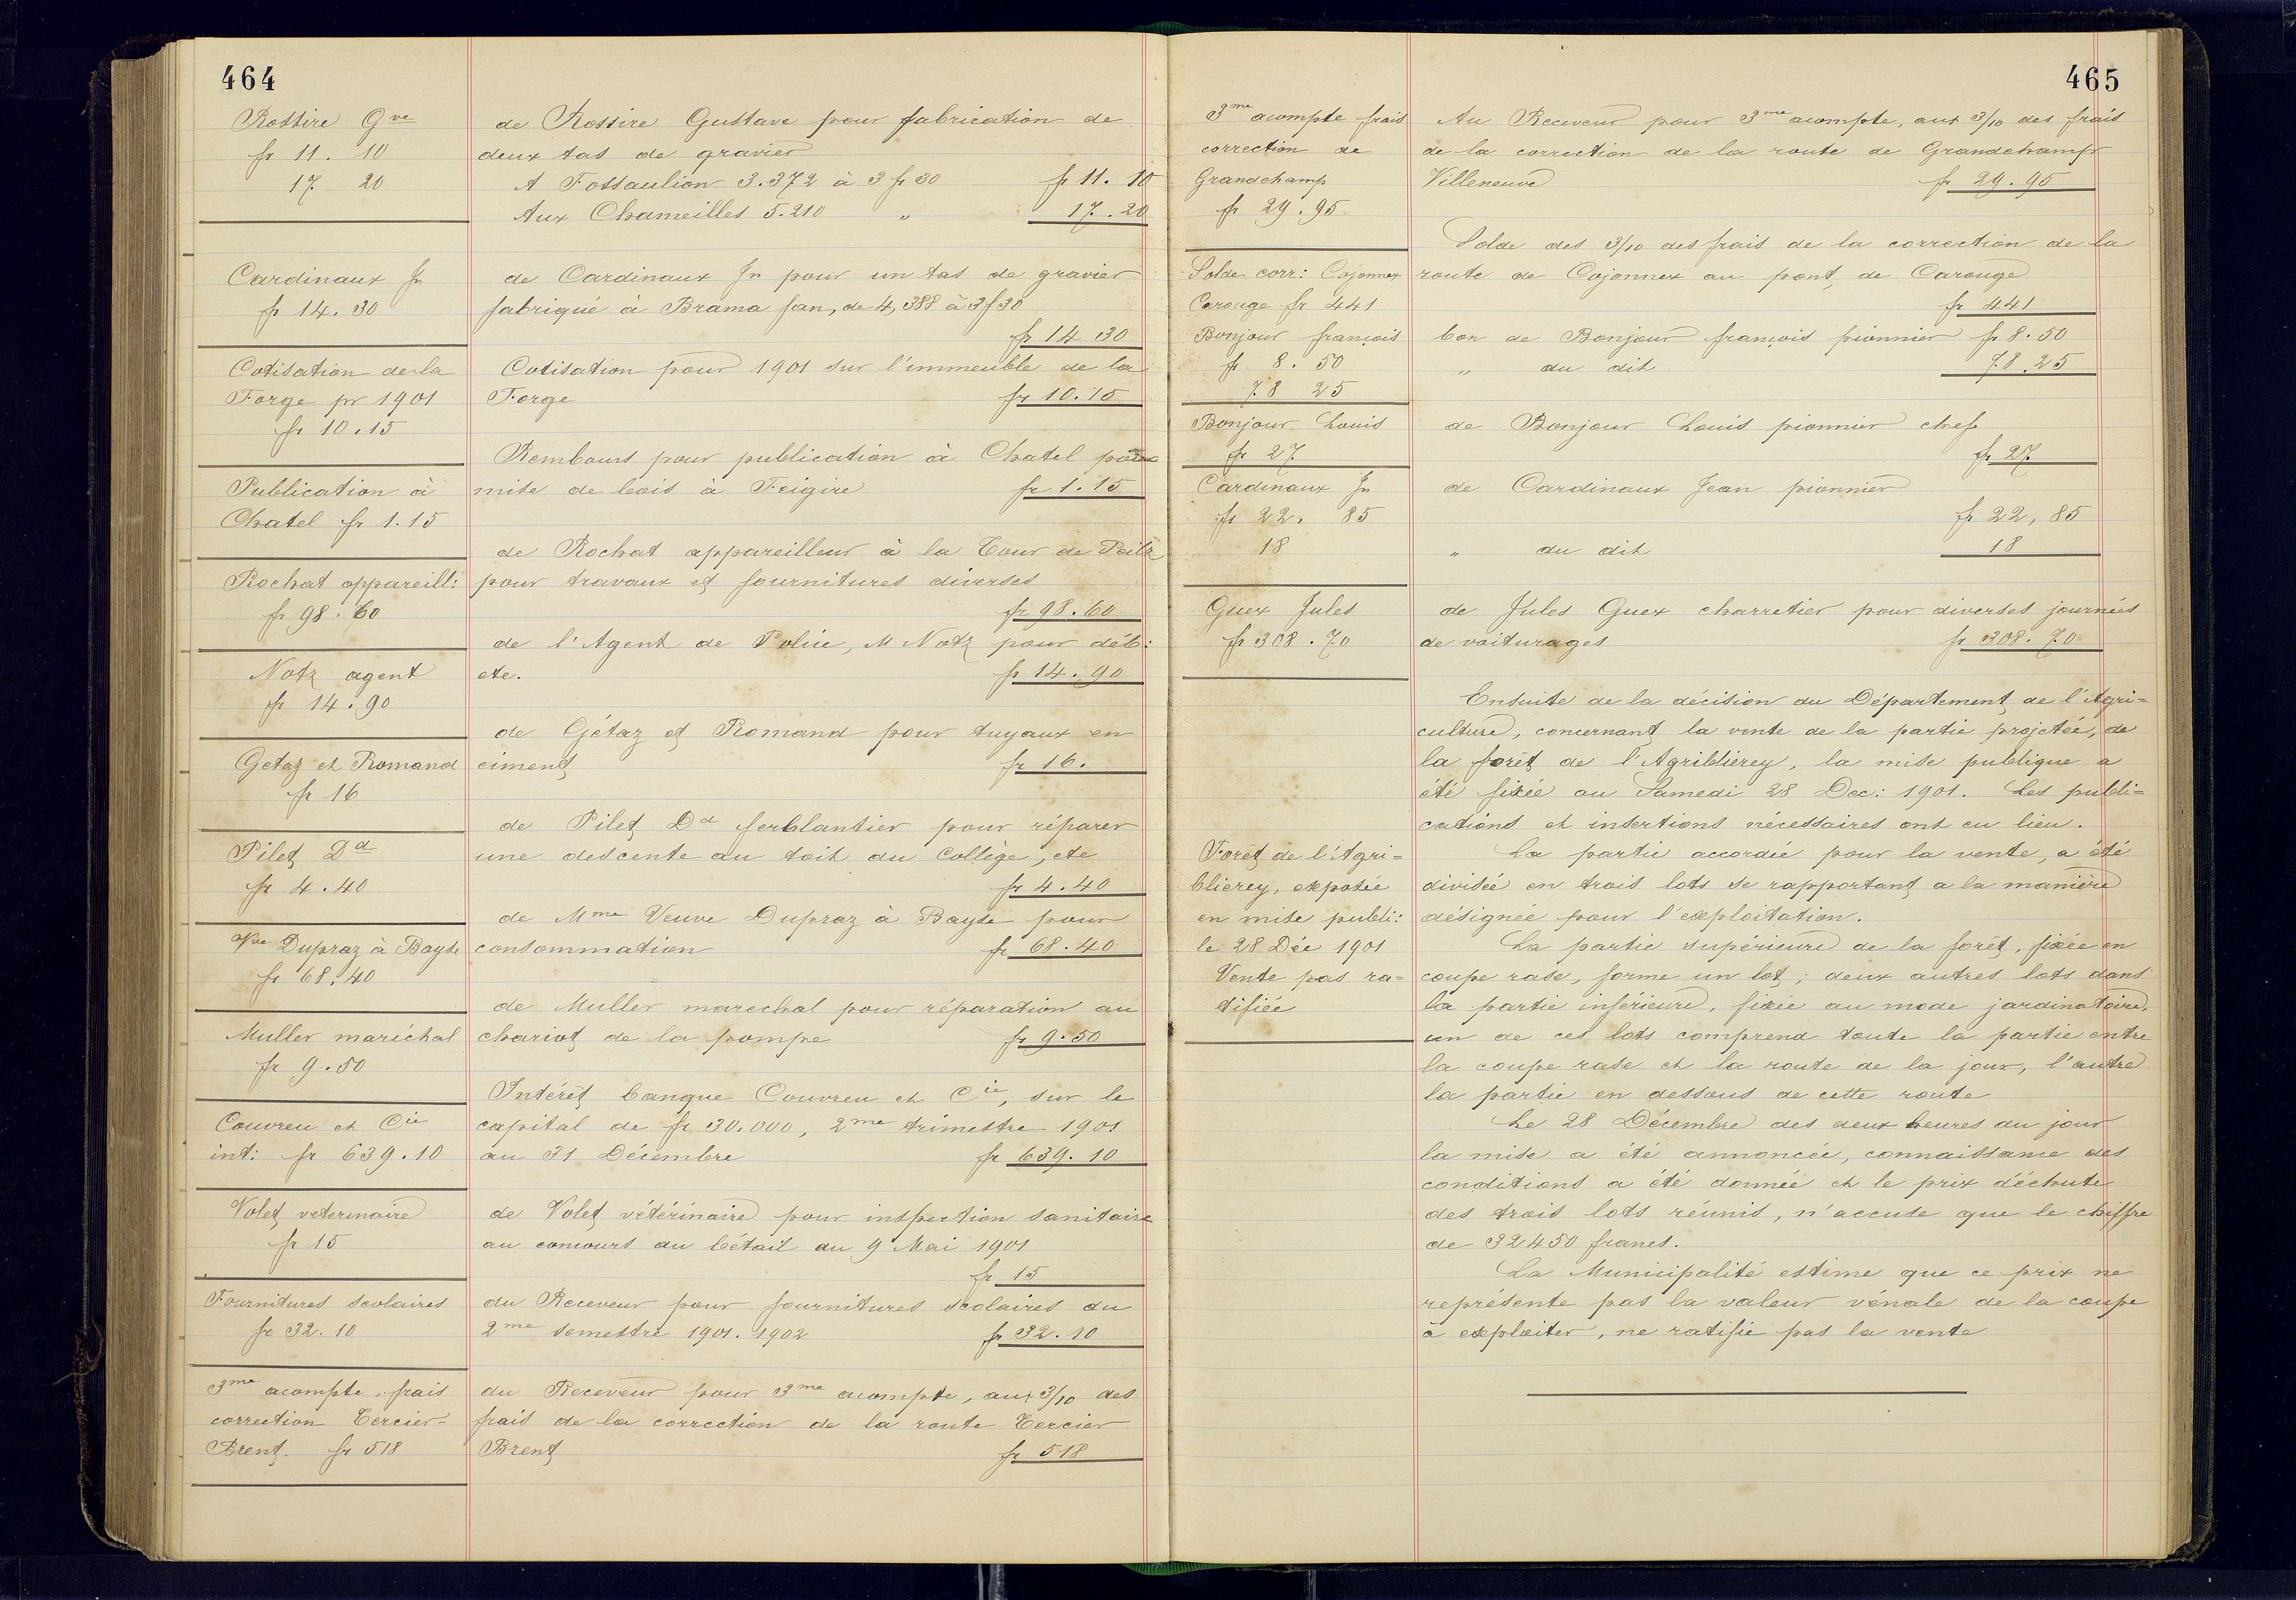 464
Rossire Gve
fr 11. 10
17 20
de Rossire Gustave pour fabrication de
deux tas de gravier
A Fossaulion 3.372 à 3 fr 30 fr 11. 10
Aux Chameilles 5.210 " 17. 20
Cardinaux Jn
fr 14. 30
de Cardinaux Jn pour un tas de gravier
fabriqué à Brama fan, de 4,388 à 3 f 30
fr 14 30
Cotisation de la
Forge pr 1901
fr 10.15
Cotisation pour 1901 sur l'immeuble de la
Forge fr 10.15
Publication à
Chatel fr 1.15
Rembours pour publication à Chatel pour
mise de bois à Feigire fr 1.15
Rochat appareill:
fr 98.60
de Rochat appareilleur à la Tour de Peilz
pour travaux et fournitures diverses
fr 98.60
Notz agent
fr 14.90
de l'Agent de Police, M Notz pour déb:
etc. fr 14.90
Getaz et Romand
fr 16
de Gétaz et Romand pour tuyaux en
ciment fr 16.
Pilet Dd
fr 4.40
de Pilet Dd ferblantier pour réparer
une descente au toit du Collège, etc
fr 4.40
Vve Dupraz à Bayse
fr 68.40
de Mme Veuve Dupraz à Bayse pour
consommation fr 68.40
Muller maréchal
fr 9.50
de Muller marechal pour réparation au
chariot de la pompe fr 9.50
Couvreu et Cie
int: fr 639.10
Intérêt banque Couvreu et Cie, sur le
capital de fr 30.000, 2me trimestre 1901
au 31 Décembre fr 639.10
Volet veterinaire
fr 15
de Volet vétérinaire pour inspection sanitaire
au concours du bétail du 9 Mai 1901
fr 15
Fournitures scolaires
fr 32.10
du Receveur pour fournitures scolaires du
2me semestre 1901.1902 fr 32.10
3me acompte, frais
correction Tercier-
Brent. fr 518
du Receveur pour 3me acompte, aux 3/10 des
frais de la correction de la route Tercier
Brent fr 518
465
3me acompte frais
correction de
Grandchamp
fr 29.95
Au Receveur pour 3me acompte, aux 3/10 des frais
de la correction de la route de Grandchamp
Villeneuve fr 29.95
Solde corr: Cojonnex
Carouge fr 441
Solde des 3/10 des frais de la correction de la
route de Cojonnex au pont de Carouge
fr 441
Bonjour françois
fr. 8. 50
78 25
bon de Bonjour françois pionnier fr 8.50
" du dit 78.25
Bonjour Louis
fr 27
de Bonjour Louis pionnier chef
fr 27
Cardinaux Jn
fr 22. 85
18
de Cardinaux Jean pionnier
fr 22,85
" du dit 18
Guex Jules
fr 308.70
de Jules Guex charretier pour diverses journées
de voiturages fr 308.70
Ensuite de la décision du Département de l'Agri=
culture, concernant la vente de la partie projetée, de
la forêt de l'Agriblierey, la mise publique a
été fixée au Samedi 28 Dec: 1901. Les publi=
cations et insertions nécessaires ont eu lieu.
Forêt de l'Agri=
blierey, exposée
en mise publi:
le 28 Déc 1901
Vente pas ra=
tifiée
La partie accordée pour la vente, a été
divisée en trois lots se rapportant a la manière
désignée pour l'exploitation.
La partie supérieure de la forêt, fixée en
coupe rase, forme un lot; deux autres lots dans
la partie inférieure, fixée au mode jardinatoire,
un de ces lots comprend toute la partie entre
la coupe rase et la route de la joux, l'autre
la partie en dessous de cette route
Le 28 Décembre des deux heures du jour
la mise a été annoncée, connaissance des
conditions a été donnée et le prix d'échute
des trois lots réunis, n'accuse que le chiffre
de 32450 francs.
La Municipalité estime que ce prix ne
représente pas la valeur vénale de la coupe
à exploiter, ne ratifie pas la vente